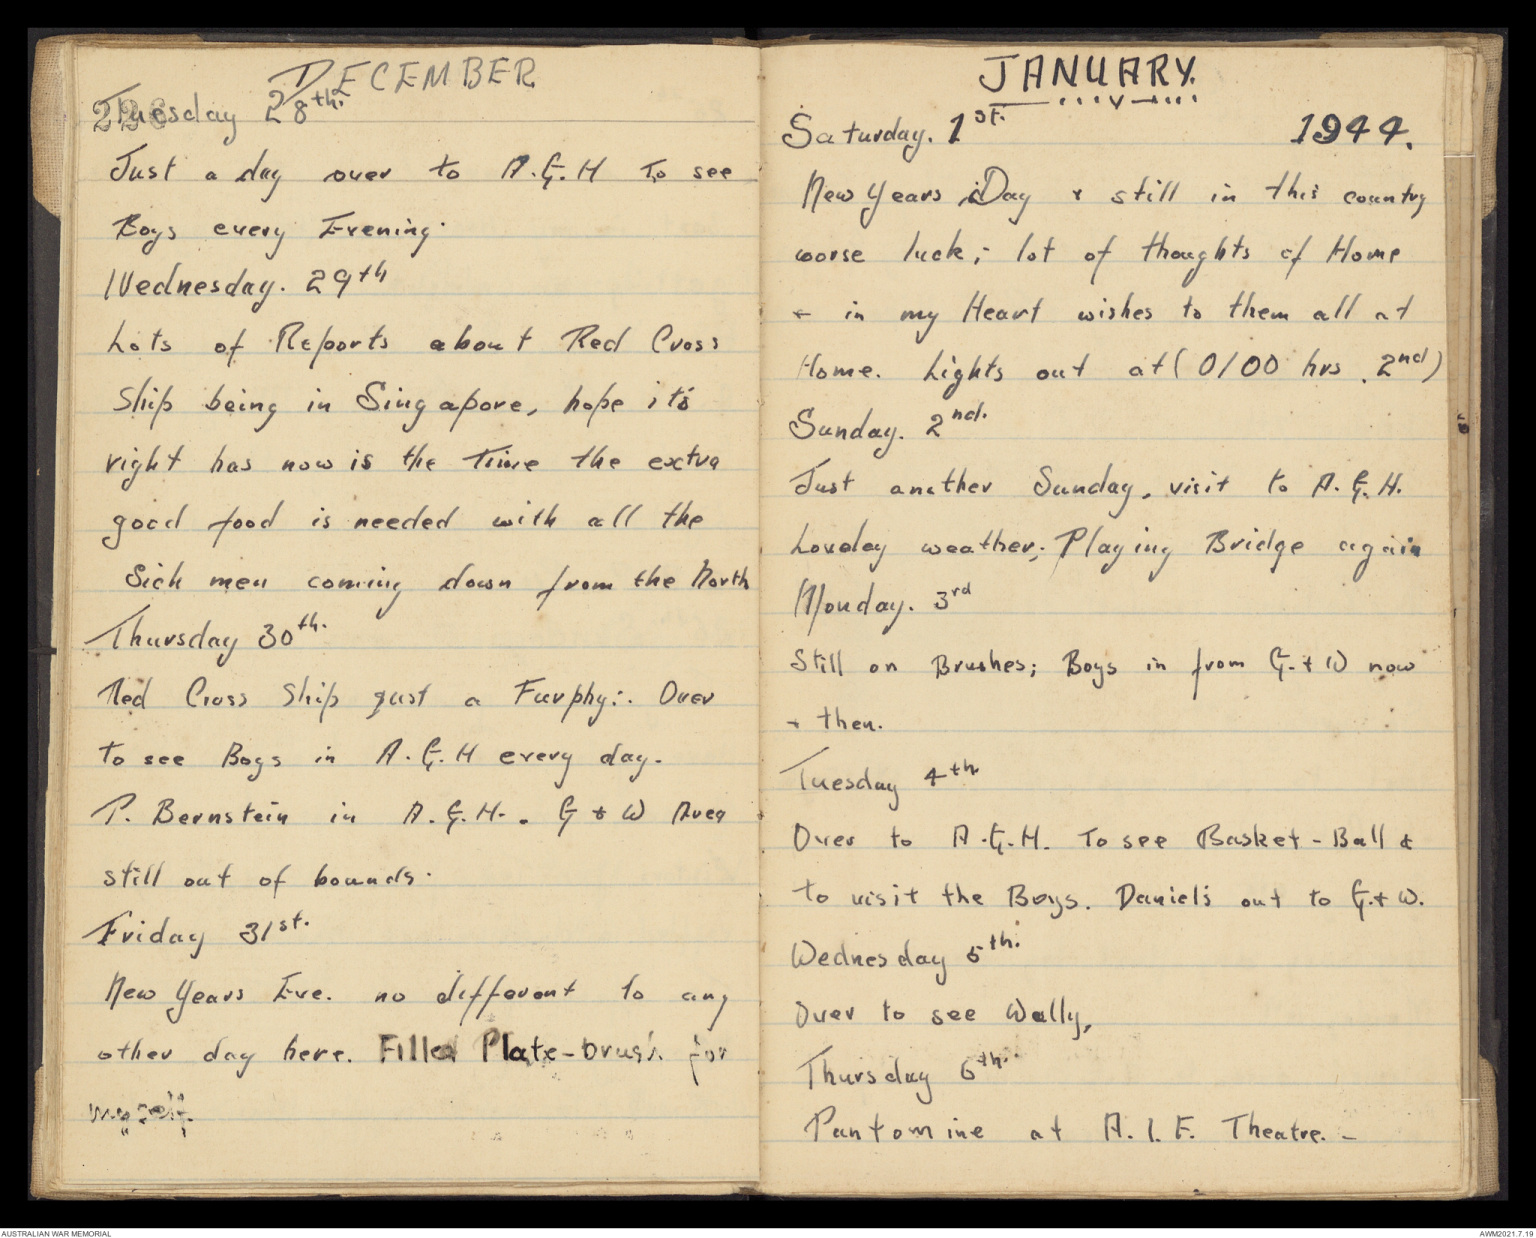 DECEMBER
226
Tuesday 28th.
Just a day over to A.G.H To see
Boys every Evening.
Wednesday. 29th
Lots of Reports about Red Cross
Ship being in Singapore, hope it's
right has now is the Time the extra
good food is needed with all the
Sick men coming down from the North
Thursday 30th.
Red Cross Ship just a Furphy:. Over
to see Boys in A.G.H every day.
P. Bernstein in A.G.H.. G & W Area
still out of bounds.
Friday 31st.
New Years Eve. no different to any
other day here. Filled Plate-brush for
myself.
JANUARY.
Saturday. 1st. 1944.
New Years Day & still in this country
worse luck; lot of thoughts of Home
& in my Heart wishes to them all at
Home. Lights out at (0100 hrs. 2nd)
Sunday. 2nd.
Just another Sunday, visit to A.G.H.
Loveley weather; Playing Bridge again
Monday. 3rd
Still on Brushes; Boys in from G.& W now
& then.
Tuesday 4th
Over to A.G.H. To see Basket-Ball &
to visit the Boys. Daniel's out to G.& W.
Wednesday 5th.
Over to see Wally,
Thursday 6th.
Pantomine at A.I.F. Theatre. -
AUSTRALIAN WAR MEMORIAL
AWM2021.7.19